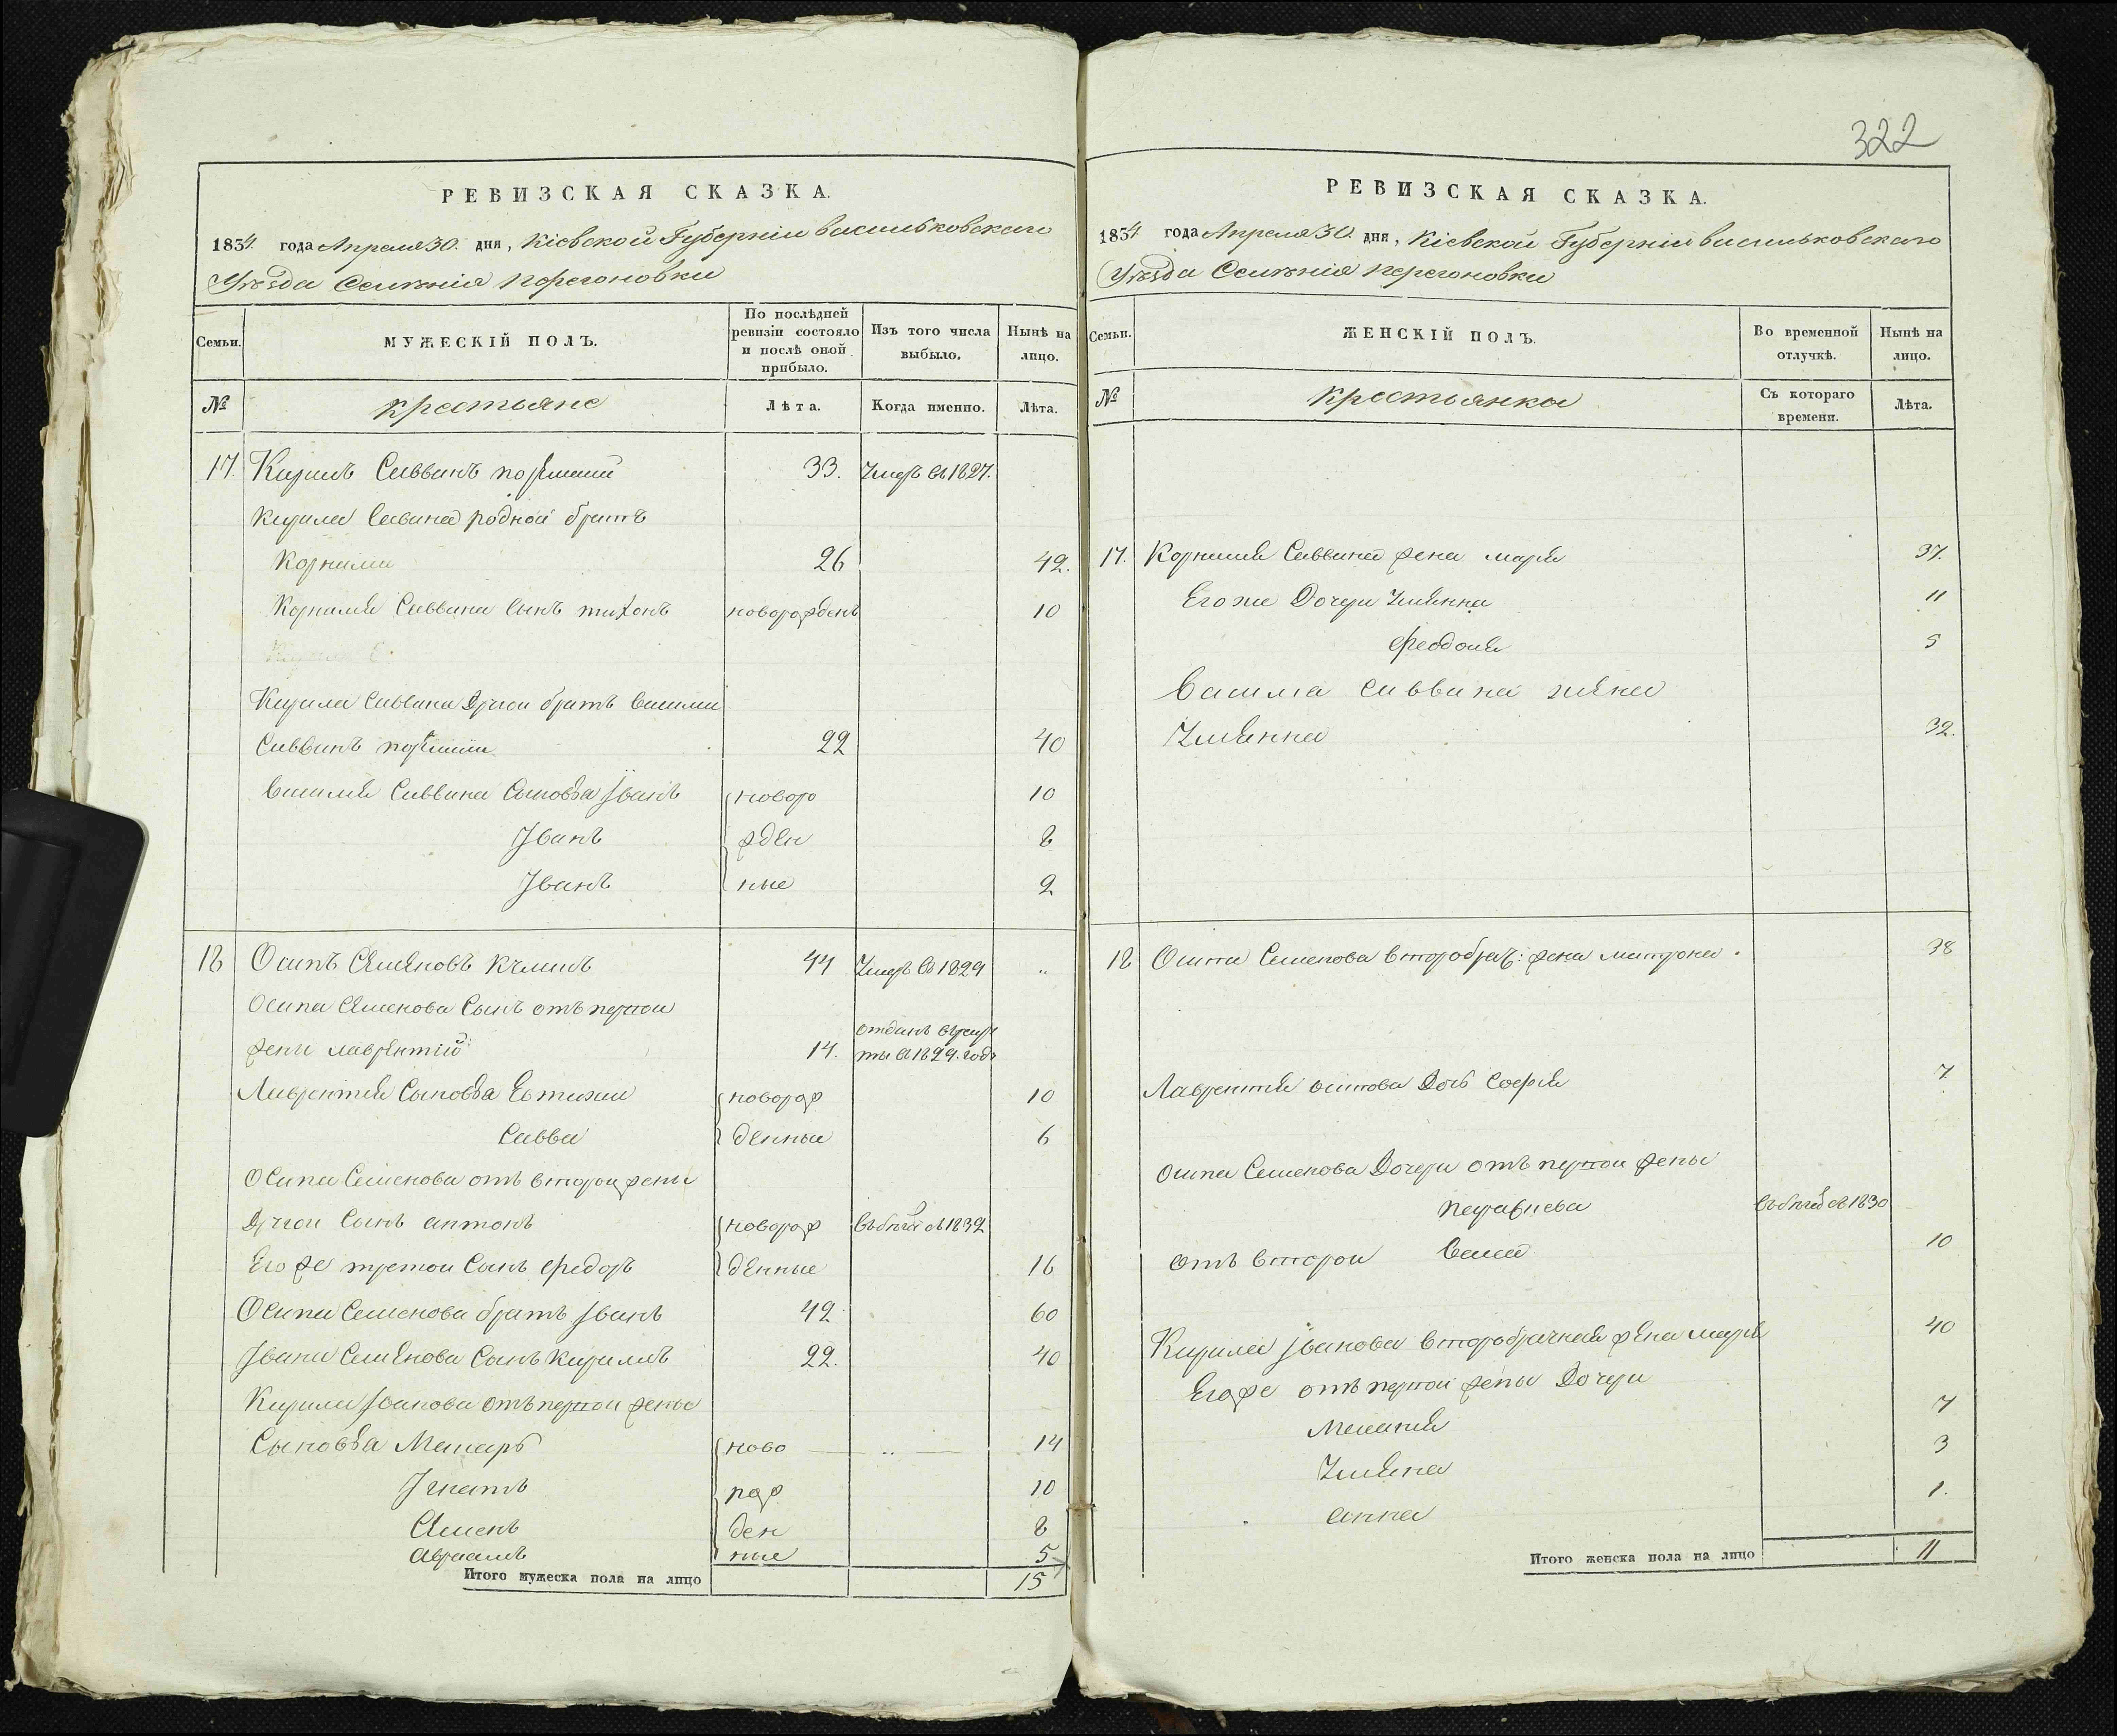 322
РЕВИЗСКАЯ СКАЗКА.
1834 года Апреля 30. дня, Кіевской Губерніи васильковскаго
Уѣзда Селѣнія Перегоновки
Семьи.
МУЖЕСКІЙ ПОЛЪ.
По послѣдней ревизіи состояло и послѣ оной прибыло.
Изъ того числа выбыло.
Нынѣ на лицо.
№
крестьяне
Лѣта.
Когда именно.
Лѣта.
17. Кирилъ Саввинъ 33. Умеръ въ 1827.
Кирила Савина родной братъ
Корнили 26 42.
Корнилія Саввина Сынъ тихонъ новорожденъ 10
Кирила Саввина Другой братъ Василии
Саввинъ 22 40
Василія Саввина Сыновья Іванъ новоро 10
Іванъ жден 8
Іванъ ные 2
18 Осипъ Семеновъ 44 Умеръ въ 1829 „
Осипа Семенова Сынъ отъ первой
жены лаврентій 14. отданъ въ рекру
ты въ 1829. годъ
Лаврентія Сыновья Евтихии новорож 10
Савва денные 6
Осипа Семенова отъ второй жены
Другой Сынъ антонъ новорож въ бѣгах съ 1832
Его же третой Сынъ федоръ денные 16
Осипа Семенова братъ Іванъ 42 60
Івана Семенова Сынъ Кирилъ 22. 40
Кирила Іванова отъ первой жены
Сыновья Макаръ ново „ 14
Ігнатъ рож 10
Семенъ ден 8
авраамъ ные 5
Итого мужеска пола на лицо 15
РЕВИЗСКАЯ СКАЗКА.
1834 года Апреля 30. дня, Кіевской Губерніи васильковскаго
Уѣзда Селѣнія Перегоновки
Семьи.
ЖЕНСКІЙ ПОЛЪ.
Во временной отлучкѣ.
Нынѣ на лицо.
№
крестьянки
Съ котораго времени.
Лѣта.
17. Корнилія Саввина жена марія 37.
Его же Дочери Ульянна 11
феодосія 5
Василія Саввина жена
Ульянна 32.
18 Осипа Семенова второбрач: жена матрона 38
Лаврентія осипова Дочь Софія 7
Осипа Семенова Дочери отъ первой жены
въ бѣгах съ 1830
отъ второй 10
Кирила Іванова второбрачная жена марія 40
Его же отъ первой жены Дочери
Меланія 7
Ульяна 3
анна 1.
Итого женска пола на лицо 11